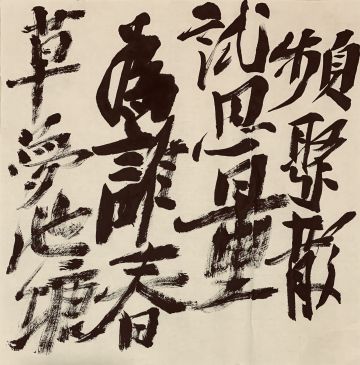 頻聚散
試思量
為誰春
草夢池塘